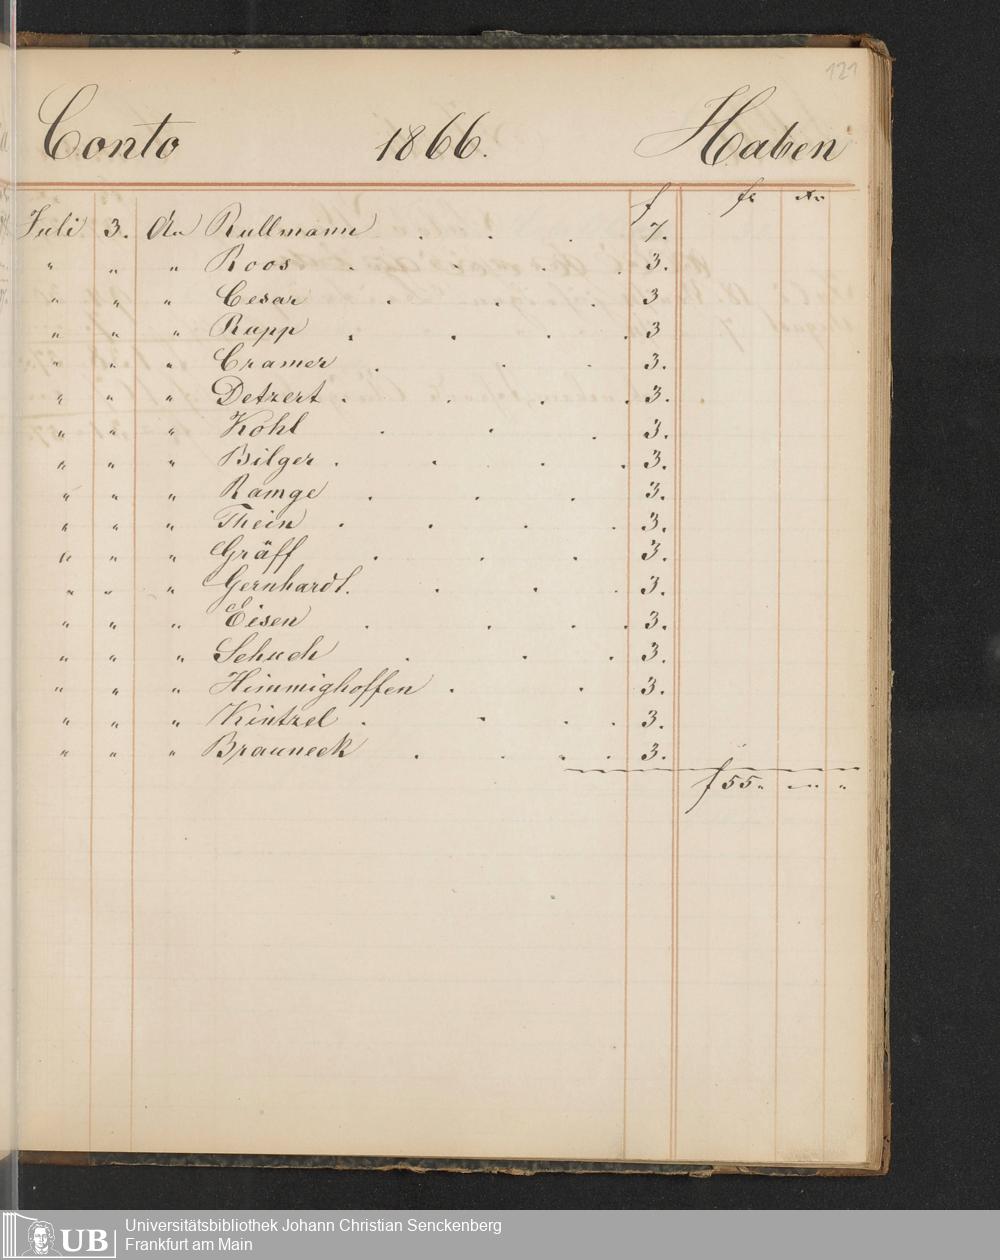 121
Conto 1866. Haben
f fr xr
Juli 3. An Rullmann . . . 7.
" " " Roos . . . . 3.
" " " Cesar . . . 3
" " " Rupp . . . . 3
" " " Cramer . . . 3.
" " " Detzert . . . . 3.
" " " Kohl . . . 3.
" " " Bilger . . . . 3.
" " " Ramge . . . 3.
" " " Thein . . . . 3.
" " " Gräff . . . 3.
" " " Gernhardt . . . 3.
" " " Eisen . . . . 3.
" " " Schuch . . . 3.
" " " Himmighoffen . . 3.
" " " Kintzel . . . . 3.
" " " Brauneck . . . . 3.
f 55 " — " "
Universitätsbibliothek Johann Christian Senckenberg
Frankfurt am Main
UB